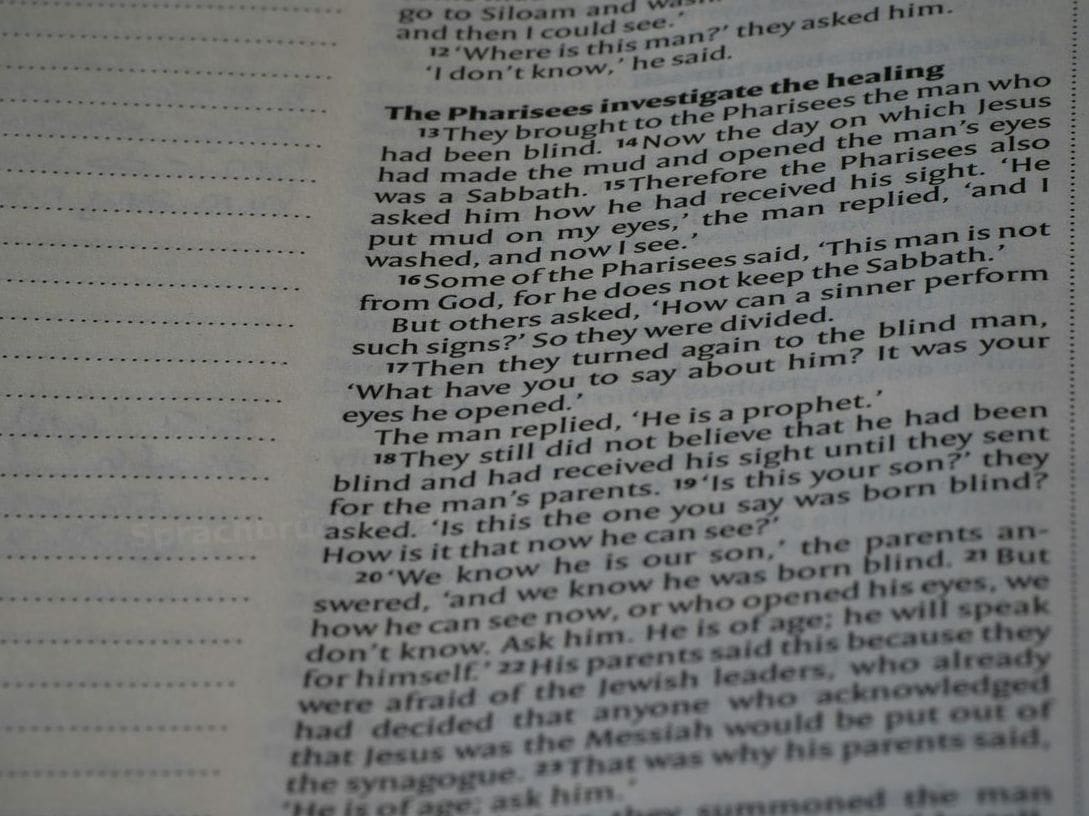 go to Siloam and
and then I could see.'
12 'Where is this man?' they asked him.
'I don't know,' he said.
The Pharisees investigate the healing
13 They brought to the Pharisees the man who
had been blind. 14 Now the day on which Jesus
had made the mud and opened the man's eyes
was a Sabbath. 15 Therefore the Pharisees also
asked him how he had received his sight. 'He
put mud on my eyes,' the man replied, 'and I
washed, and now I see.'
16 Some of the Pharisees said, 'This man is not
from God, for he does not keep the Sabbath.'
But others asked, 'How can a sinner perform
such signs?' So they were divided.
17 Then they turned again to the blind man,
'What have you to say about him? It was your
eyes he opened.'
The man replied, 'He is a prophet.'
18 They still did not believe that he had been
blind and had received his sight until they sent
for the man's parents. 19 'Is this your son?' they
asked. 'Is this the one you say was born blind?
How is it that now he can see?'
20 'We know he is our son,' the parents an-
swered, 'and we know he was born blind. 21 But
how he can see now, or who opened his eyes, we
don't know. Ask him. He is of age; he will speak
for himself.' 22 His parents said this because they
were afraid of the Jewish leaders, who already
had decided that anyone who acknowledged
that Jesus was the Messiah would be put out of
the synagogue. 23 That was why his parents said,
'He is of age; ask him.'
they summoned the man